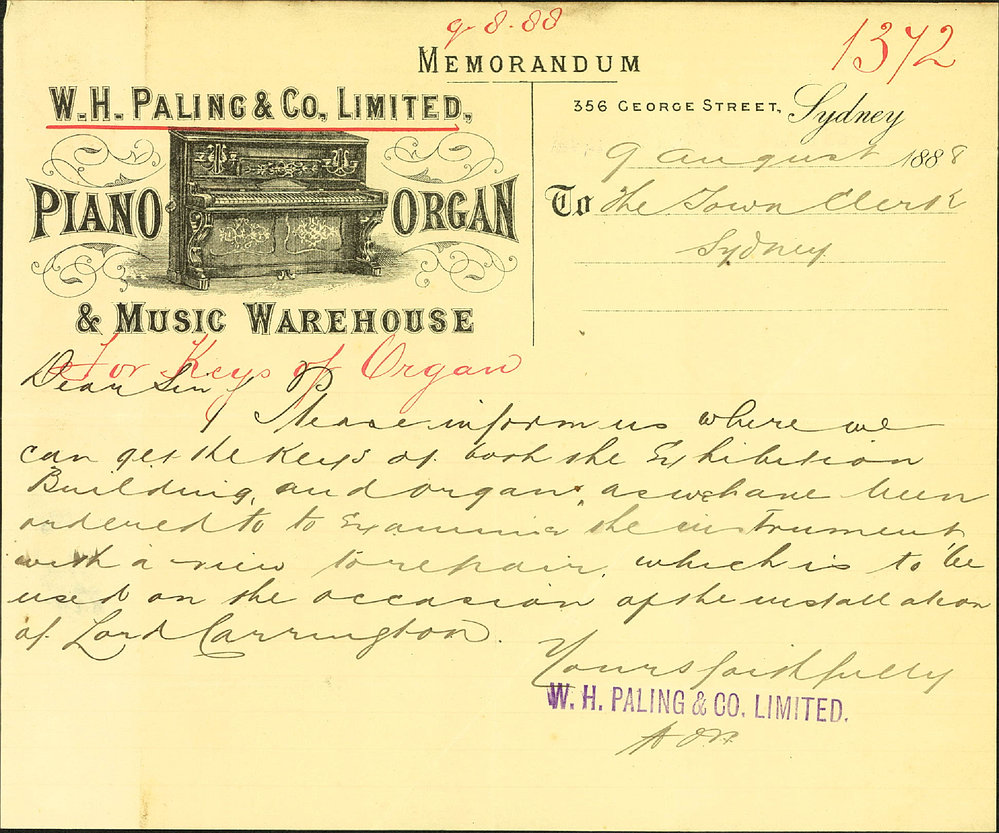 9.8.88
1372
MEMORANDUM
W. H. PALING & CO., LIMITED,
PIANO ORGAN
& MUSIC WAREHOUSE
356 GEORGE STREET, Sydney
9 August 1888
To The Town Clerk
Sydney
For Keys of Organ
Dear Sir
Please inform us where we
can get the Keys of both the Exhibition
Building, and organ, as we have been
ordered to to Examine the instrument
with a view to repair, which is to be
used on the occasion of the installation
of Lord Carrington.
Yours faithfully
W. H. PALING & CO. LIMITED.